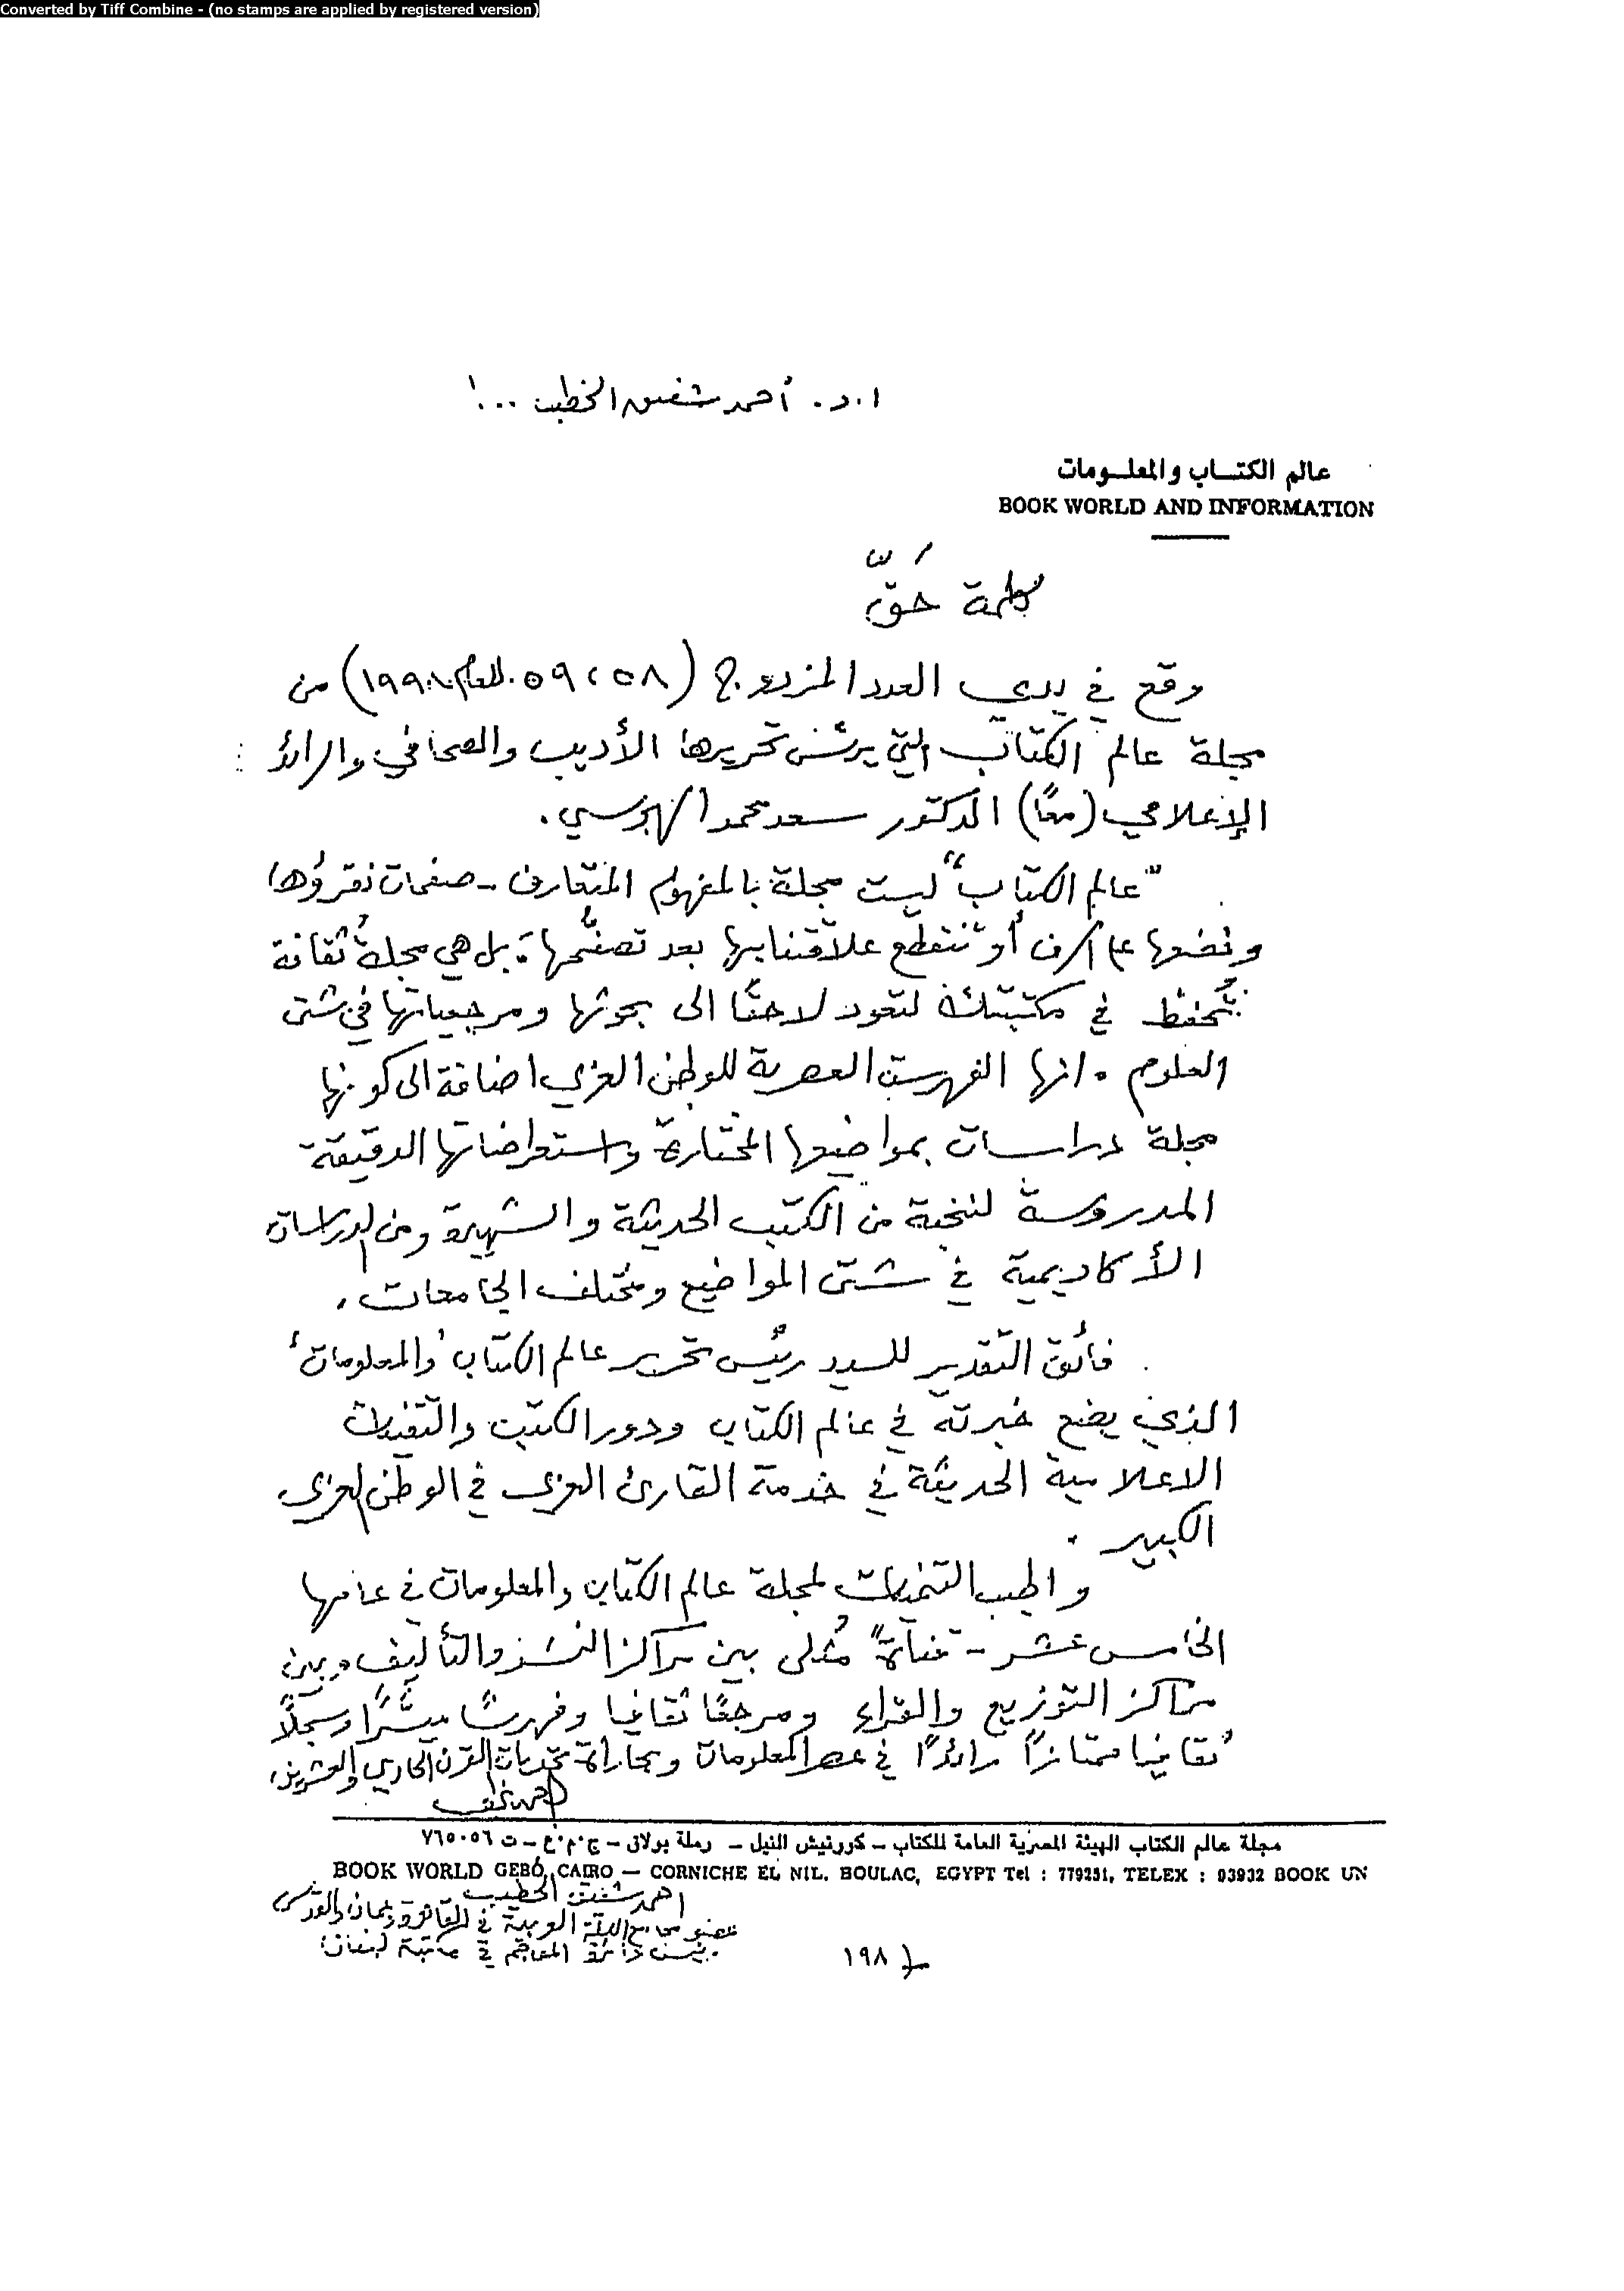 Converted by Tiff Combine - (no stamps are applied by registered version)
ا.د. أحمد شفيق الخطيب ...!
عالم الكتـاب والمعلـومات
BOOK WORLD AND INFORMATION
كلمة حَقّ
وقع في يدي العدد المزدوج (٥٨ ، ٥٩ للعام ١٩٩٨) من
مجلة عالم الكتاب التي يرئس تحريرها الأديب والصحافي والرائد
الإعلامي (معًا) الدكتور سعد محمد الهجرسي .
"عالم الكتاب" ليست مجلة بالمفهوم المتعارف - صفحات نقرؤها
ونضعها على الرف أو تنقطع علاقتنا بها بعد تصفّحها ؛ بل هي مجلةُ ثقافة
تُحفظ في مكتبتك لتعود لاحقًا الى بحوثها ومرجعياتها في شتى
العلوم . انها الفهرست العصرية للوطن العربي اضافة الى كونها
مجلة دراسات بمواضيعها المختارة واستعراضاتها الدقيقة
المدروسة لنخبة من الكتب الحديثة والشهيرة ومن الدراسات
الأكاديمية في شتى المواضيع ومختلف الجامعات .
فائق التقدير للسيد رئيس تحرير عالم الكتاب 'والمعلومات'
الذي يضع خبرته في عالم الكتاب ودور الكتب والتّقنيات
الاعلامية الحديثة في خدمة القارئ العربي في الوطن العربي
الكبير .
واطيب التمنيات لمجلة عالم الكتاب والمعلومات في عامها
الخامس عشر - قناةً مُثلى بين مراكز النشر والتأليف وبين
مراكز التوزيع والقراء ومرجعًا ثقافيا وفهرستًا ميسَّرًا وسجلًّا
ثقافيا ممتازًا رائدًا في عصر المعلومات ومجاراة تحديات القرن الحادي والعشرين.
مجلة عالم الكتاب الهيئة المصرية العامة للكتاب - كورنيش النيل - رملة بولاق - ج.م.ع - ت ٧٦٥٠٥٦
BOOK WORLD GEBO, CAIRO — CORNICHE EL NIL. BOULAC, EGYPT Tel : 779251, TELEX : 93932 BOOK UN
احمد شفيق الخطيب
عضو مجامع اللغة العربية في القاهرة وعمان والقدس
رئيس دائرة المعاجم في مكتبة لبنان
١٩٨